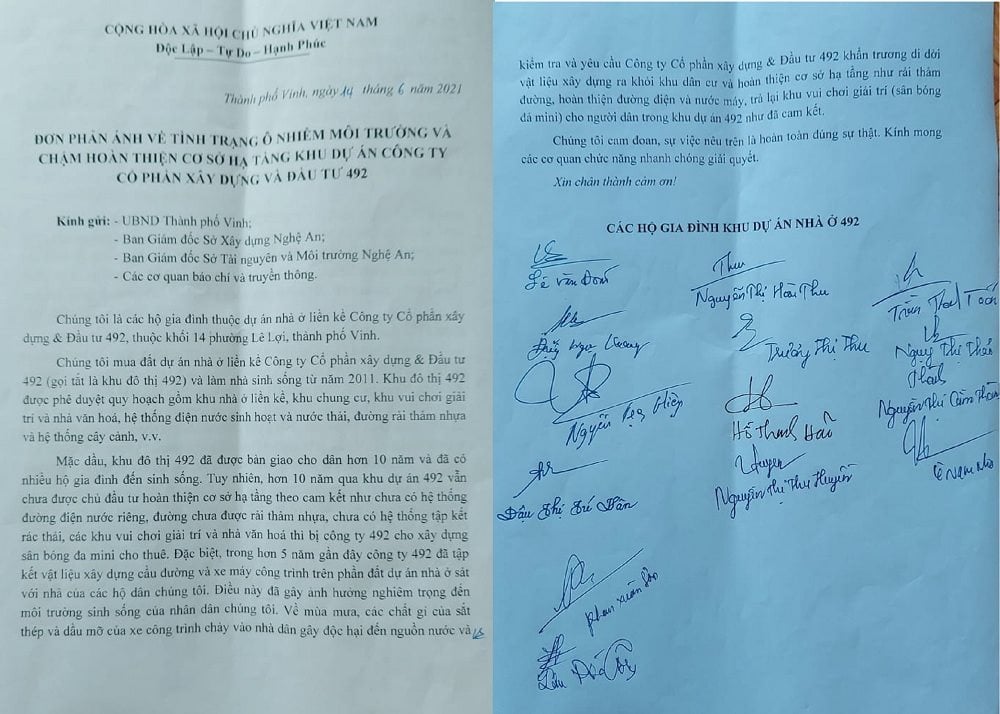 CỘNG HÒA XÃ HỘI CHỦ NGHĨA VIỆT NAM
Độc Lập – Tự Do – Hạnh Phúc
Thành phố Vinh, ngày 14 tháng 6 năm 2021
ĐƠN PHẢN ÁNH VỀ TÌNH TRẠNG Ô NHIỄM MÔI TRƯỜNG VÀ
CHẬM HOÀN THIỆN CƠ SỞ HẠ TẦNG KHU DỰ ÁN CÔNG TY
CỔ PHẦN XÂY DỰNG VÀ ĐẦU TƯ 492
Kính gửi: - UBND Thành phố Vinh;
- Ban Giám đốc Sở Xây dựng Nghệ An;
- Ban Giám đốc Sở Tài nguyên và Môi trường Nghệ An;
- Các cơ quan báo chí và truyền thông.
Chúng tôi là các hộ gia đình thuộc dự án nhà ở liền kề Công ty Cổ phần xây
dựng & Đầu tư 492, thuộc khối 14 phường Lê Lợi, thành phố Vinh.
Chúng tôi mua đất dự án nhà ở liền kề Công ty Cổ phần xây dựng & Đầu tư
492 (gọi tắt là khu đô thị 492) và làm nhà sinh sống từ năm 2011. Khu đô thị 492
được phê duyệt quy hoạch gồm khu nhà ở liền kề, khu chung cư, khu vui chơi giải
trí và nhà văn hoá, hệ thống điện nước sinh hoạt và nước thải, đường rải thảm nhựa
và hệ thống cây cảnh, v.v.
Mặc dầu, khu đô thị 492 đã được bàn giao cho dân hơn 10 năm và đã có
nhiều hộ gia đình đến sinh sống. Tuy nhiên, hơn 10 năm qua khu dự án 492 vẫn
chưa được chủ đầu tư hoàn thiện cơ sở hạ tầng theo cam kết như chưa có hệ thống
đường điện nước riêng, đường chưa được rải thảm nhựa, chưa có hệ thống tập kết
rác thải, các khu vui chơi giải trí và nhà văn hoá thì bị công ty 492 cho xây dựng
sân bóng đa mini cho thuê. Đặc biệt, trong hơn 5 năm gần đây công ty 492 đã tập
kết vật liệu xây dựng cầu đường và xe máy công trình trên phần đất dự án nhà ở sát
với nhà của các hộ dân chúng tôi. Điều này đã gây ảnh hưởng nghiêm trọng đến
môi trường sinh sống của nhân dân chúng tôi. Về mùa mưa, các chất gỉ của sắt
thép và dầu mỡ của xe công trình chảy vào nhà dân gây độc hại đến nguồn nước và
kiểm tra và yêu cầu Công ty Cổ phần xây dựng & Đầu tư 492 khẩn trương di dời
vật liệu xây dựng ra khỏi khu dân cư và hoàn thiện cơ sở hạ tầng như rải thảm
đường, hoàn thiện đường điện và nước máy, trả lại khu vui chơi giải trí (sân bóng
đá mini) cho người dân trong khu dự án 492 như đã cam kết.
Chúng tôi cam đoan, sự việc nêu trên là hoàn toàn đúng sự thật. Kính mong
các cơ quan chức năng nhanh chóng giải quyết.
Xin chân thành cảm ơn!
CÁC HỘ GIA ĐÌNH KHU DỰ ÁN NHÀ Ở 492
Lê Văn
Thu
Nguyễn Thị Hoài Thu
Trần
Trương Thị Thu
Thị Thảo
Nguyễn Hiền
Hồ Thanh Hảo
Nguyễn Thị Cẩm
Huyen
Đậu Thị Tú
Nguyễn Thị Thu Huyền
Lê Nam
Phan Xuân